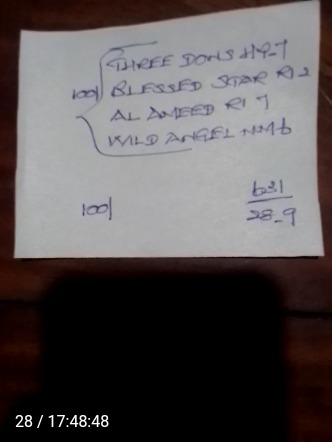 THREE DONS H9-7
100/ BLESSED STAR R1 2
AL AMEED R1 7
WILD ANGEL NM6
100/
631
28_9
28 / 17:48:48